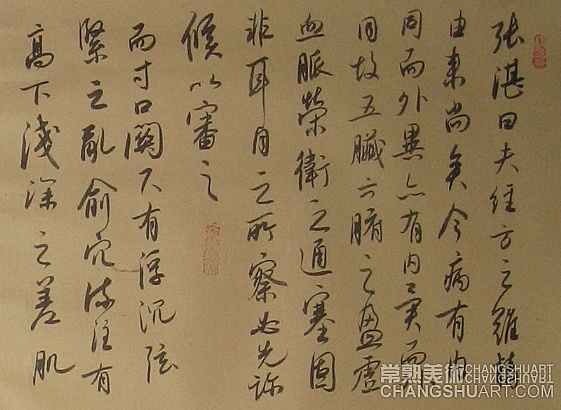 張湛曰夫經方之難精
由来尚矣今病有内
同而外異亦有内異而外
同故五臟六腑之盈虛
血脈榮衛之通塞固
非耳目之所察必先診
候以審之
而寸口關尺有浮沉弦
緊之亂俞穴流注有
高下淺深之差肌
常熟美術 CHANGSHUART
CHANGSHUART.COM